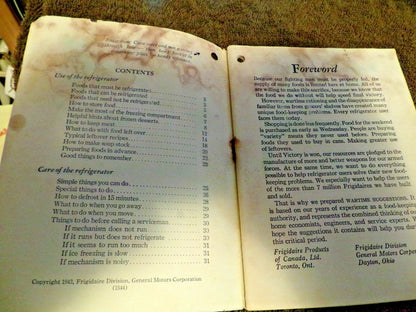 CONTENTS
Use of the refrigerator
Foods that must be refrigerated
Foods that can be refrigerated
Foods that need not be refrigerated
How to store food
Make the most of the freezing compartment
Helpful hints about frozen desserts
How to keep meats
What to do with food left over 12
Typical leftover recipes 14
How to make soup stock 18
Preparing foods in advance 20
Good things to remember
Care of the refrigerator
Simple things you can do 25
Special things to do 26
How to defrost in 15 minutes 28
What to do when you go away 29
What to do when you move 29
Things to do before calling a serviceman
If mechanism does not run 30
If it runs but does not refrigerate 31
If it seems to run too much 31
If ice freezing is slow 31
If mechanism is noisy 31
Copyright 1943, Frigidaire Division, General Motors Corporation
(1544)
Foreword
Because our fighting men must be properly fed, the
supply of many foods is limited here at home. All of us
are willing to make this sacrifice, because we know that
the food we do without will help speed final Victory.
However, wartime rationing and the disappearance of
familiar items from grocers' shelves have created many
unique food keeping problems. Every refrigerator user
faces them today.
Shopping is done less frequently. Food for the weekend
is purchased as early as Wednesday. People are buying
"variety" meats they never used before. Preparing
foods they used to buy in cans. Making greater use
of leftovers.
Until Victory is won, our resources are pledged to the
manufacture of more and better weapons for our armed
forces. At the same time, we want to do everything
possible to help refrigerator users solve their new food-
keeping problems. We especially want to help the users
of the more than 7 million Frigidaires we have built
and sold.
That is why we prepared WARTIME SUGGESTIONS. It
is based on our years of experience as a food-keeping
authority, and represents the combined thinking of our
home economists, engineers, and service experts. We
hope the suggestions it contains will help you during
this critical period.
Frigidaire Products
of Canada, Ltd.
Toronto, Ont.
Frigidaire Division
General Motors Corp
Dayton, Ohio